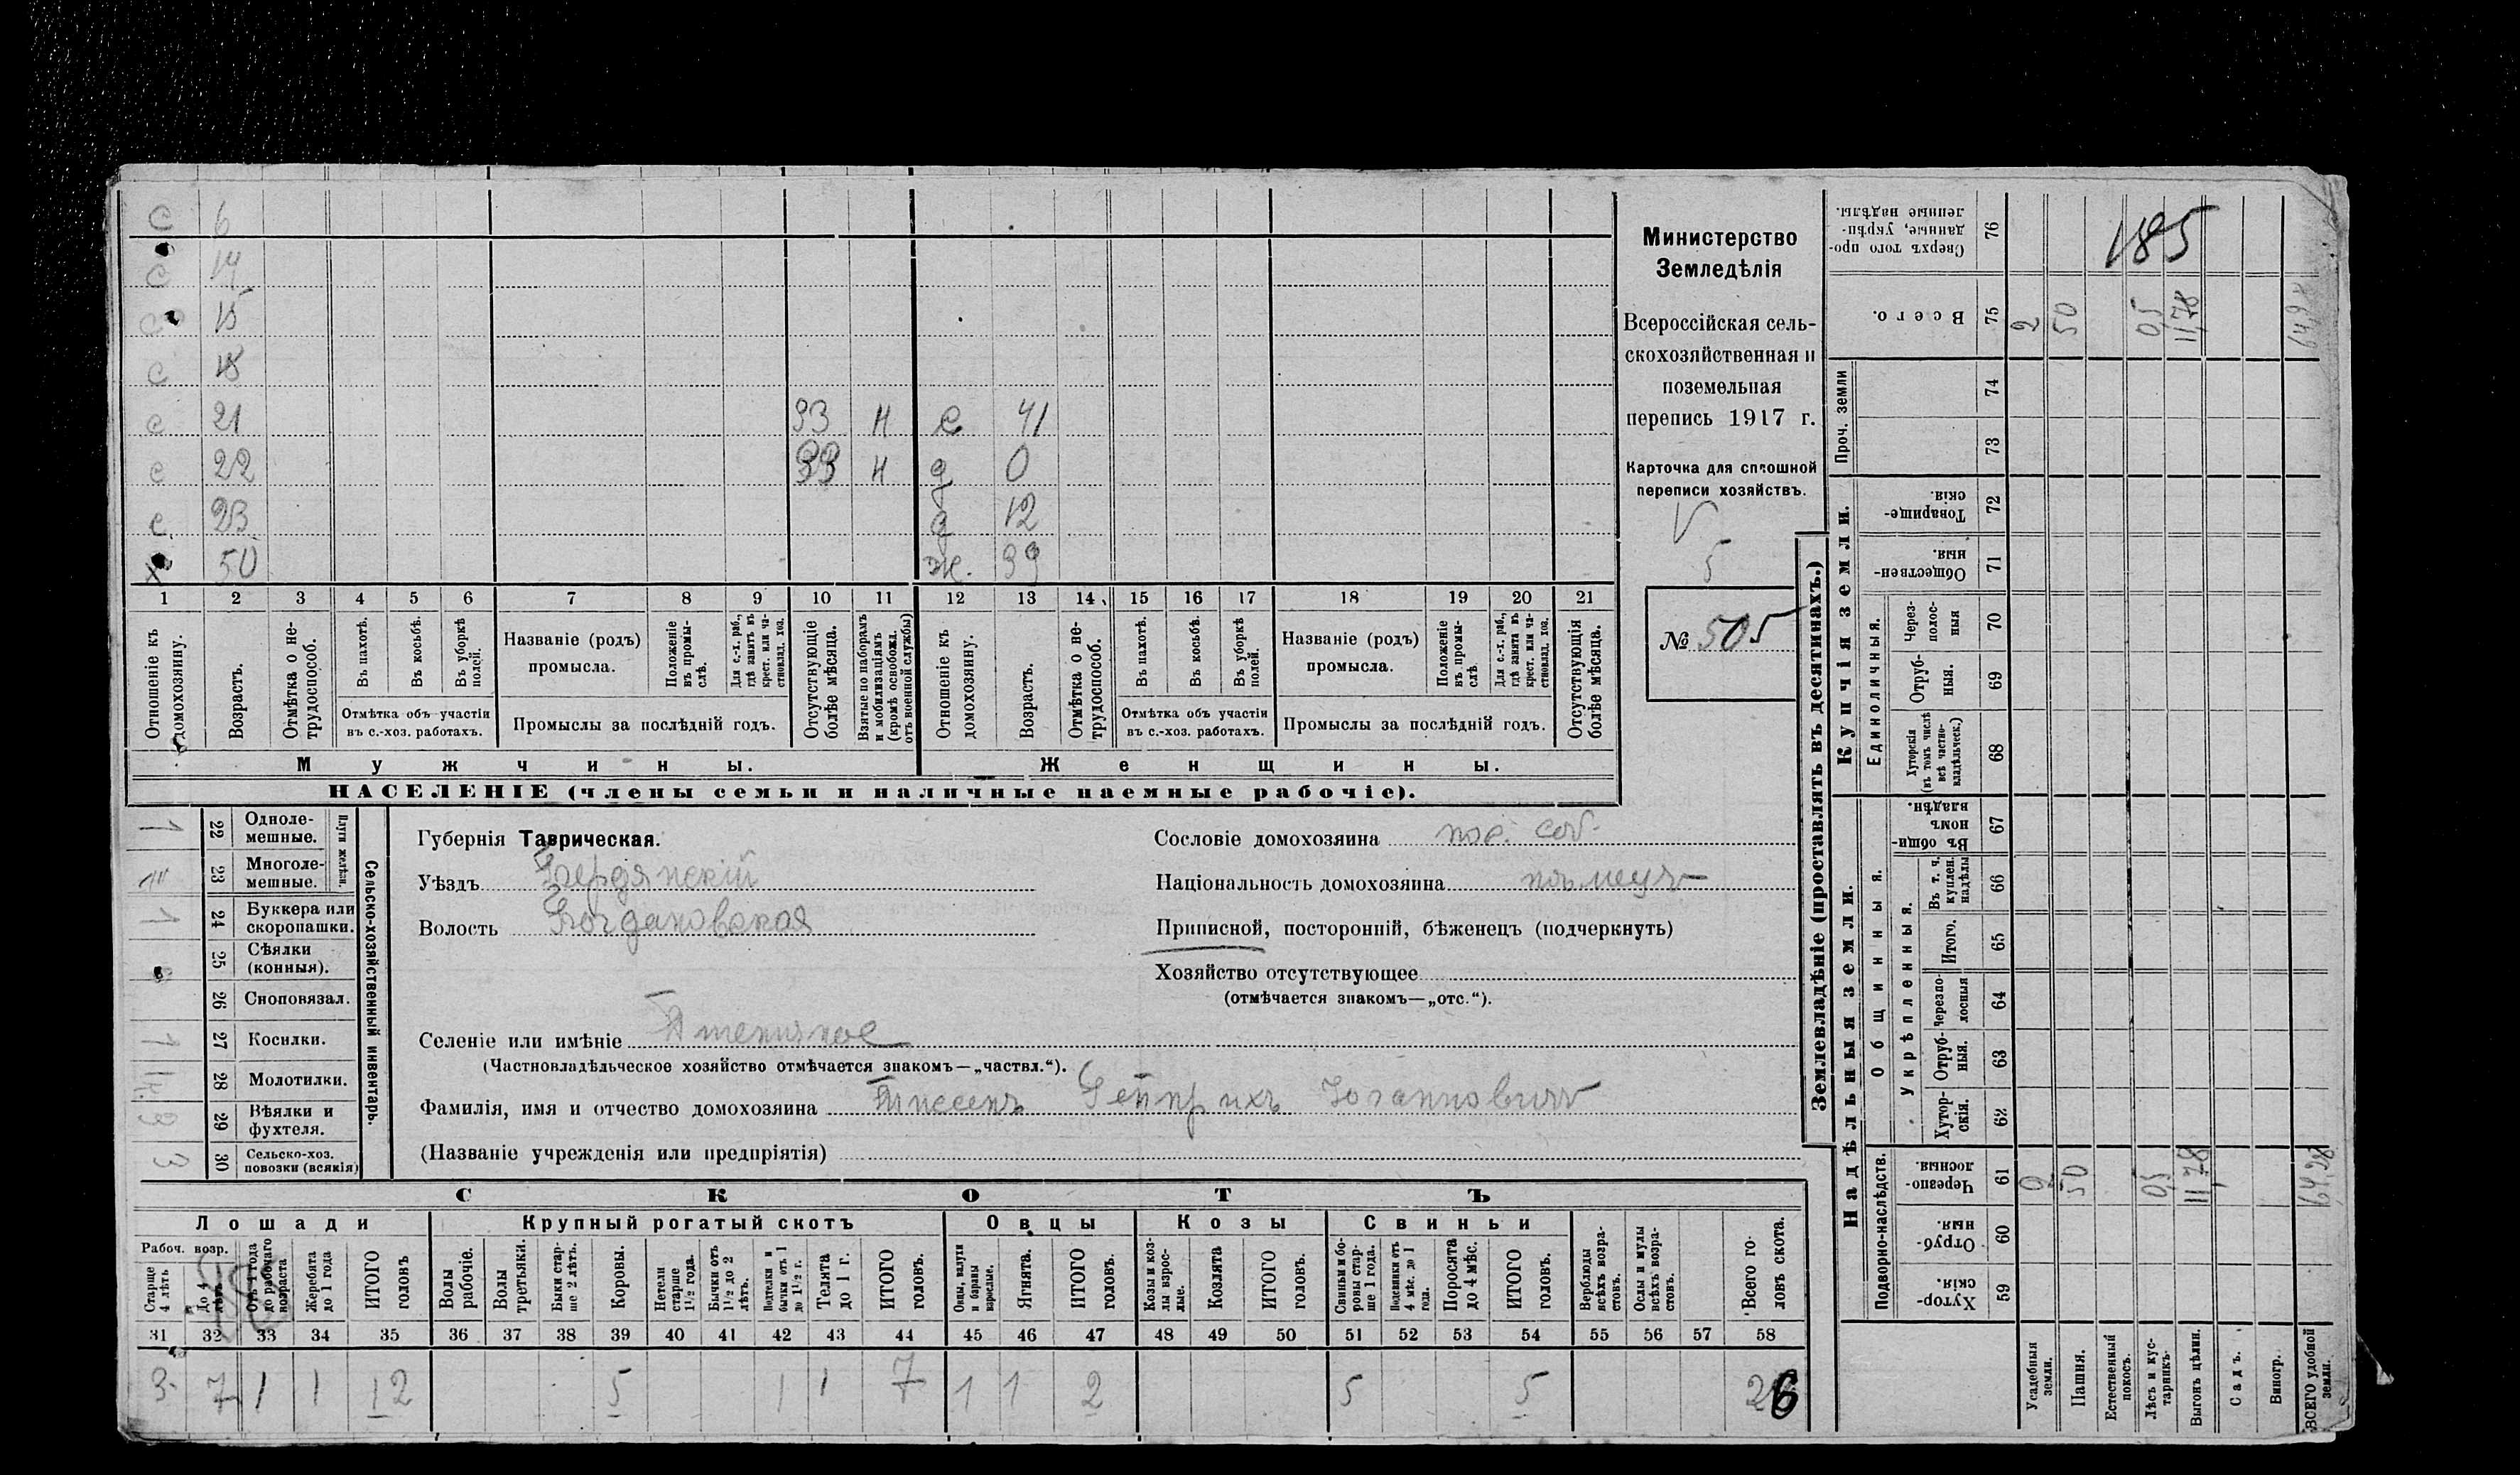 с 6
с 14
с 15
с 18
с 21 93 н с 41
с 22 93 н д 0
с. 23 д 12
х 50 ж. 39
1 2 3 4 5 6 7 8 9 10 11 12 13 14 15 16 17 18 19 20 21
Отношеніе къ домохозяину.
Возрастъ.
Отмѣтка о не-трудоспособ.
Въ пахотѣ.
Въ косьбѣ.
Въ уборкѣ полей.
Отмѣтка объ участіи въ с.-хоз. работахъ.
Названіе (родъ) промысла.
Положеніе въ промы-слѣ.
Для с.-х. раб., гдѣ занятъ въ крест. или ча-стновлад. хоз.
Промыслы за послѣдній годъ.
Отсутствующіе болѣе мѣсяца.
Взятые по наборамъ и мобилизаціямъ (кромѣ освобожд. отъ военной службы)
Отношеніе къ домохозяину.
Возрастъ.
Отмѣтка о не-трудоспособ.
Въ пахотѣ.
Въ косьбѣ.
Въ уборкѣ полей.
Отмѣтка объ участіи въ с.-хоз. работахъ.
Названіе (родъ) промысла.
Положеніе въ промы-слѣ.
Для с.-х. раб., гдѣ занята въ крест. или ча-стновлад. хоз.
Промыслы за послѣдній годъ.
Отсутствующія болѣе мѣсяца.
Мужчины. Женщины.
НАСЕЛЕНІЕ (члены семьи и наличные наемные рабочіе).
Министерство
Земледѣлія
Всероссійская сель-
скохозяйственная и
поземельная
перепись 1917 г.
Карточка для сплошной
переписи хозяйствъ.
5
№ 505
Сельско-хозяйственный инвентарь.
Плуги желѣзн.
1 22 Одноле-мешные.
23 Многоле-мешные.
1 24 Буккера или скоропашки.
25 Сѣялки (конныя).
26 Сноповязал.
1 27 Косилки.
28 Молотилки.
29 Вѣялки и фухтеля.
3 30 Сельско-хоз. повозки (всякія)
Губернія Таврическая.
Уѣздъ Бердянскій
Волость Богдановская
Сословіе домохозяина пос. соб.
Національность домохозяина
Приписной, посторонній, бѣженецъ (подчеркнуть)
Хозяйство отсутствующее
(отмѣчается знакомъ—„отс.“).
Селеніе или имѣніе
(Частновладѣльческое хозяйство отмѣчается знакомъ—„частвл.“).
Фамилія, имя и отчество домохозяина Тиссенъ Генрихъ Іоганновичъ
(Названіе учрежденія или предпріятія)
СКОТЪ
Лошади Крупный рогатый скотъ Овцы Козы Свиньи
Рабоч. возр.
Старше 4 лѣтъ
До 4 лѣтъ.
Отъ 1 года до рабочаго возраста
Жеребята до 1 года
ИТОГО головъ
Волы рабочіе.
Волы третьяки.
Быки стар-ше 2 лѣтъ.
Коровы.
Нетели старше 1½ года.
Бычки отъ 1½ до 2 лѣтъ.
Подтелки и бычки отъ 1 до 1½ г.
Телята до 1 г.
ИТОГО головъ.
Овцы, валухи и бараны взрослые.
Ягнята.
ИТОГО головъ.
Козы и коз-лы взрос-лые.
Козлята
ИТОГО головъ.
Свиньи и бо-ровы стар-ше 1 года.
Подсвинки отъ 4 мѣс. до 1 года.
Поросята до 4 мѣс.
ИТОГО головъ.
Верблюды всѣхъ возра-стовъ.
Ослы и мулы всѣхъ возра-стовъ.
Всего го-ловъ скота.
31 32 33 34 35 36 37 38 39 40 41 42 43 44 45 46 47 48 49 50 51 52 53 54 55 56 57 58
3 7 1 1 12 5 1 1 7 1 1 2 5 5 26
Землевладѣніе (проставлять въ десятинахъ.)
Надѣльныя земли. Купчія земли. Проч. земли
Подворно-наслѣдств.
Общинныя.
Укрѣпленныя.
Единоличныя.
Хутор-скія. 59
Отруб-ныя. 60
Черезпо-лосныя. 61
Хутор-скія. 62
Отруб-ныя. 63
Черезпо-лосныя 64
Итого. 65
Въ т. ч. куплен. надѣлы 66
Въ общин-номъ владѣн. 67
Хуторскія (въ томъ числѣ всѣ частно-владѣльческ.) 68
Отруб-ныя. 69
Через-полос-ныя 70
Обществен-ныя. 71
Товарище-скія. 72
73
74
Всего. 75
Сверхъ того про-данные, укрѣп-ленные надѣлы. 76
Усадебныя земли. 2 2
Пашня. 50 50
Естественный покосъ.
Лѣсъ и кус-тарникъ. 0,5 0,5
Выгонъ цѣлин. 11,78 11,78
Садъ.
Виногр.
ВСЕГО удобной земли. 64,28 64,28
185